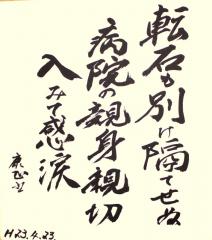 転石も別け隔てせぬ
病院の親身親切
入みて感涙
H23.4.23.